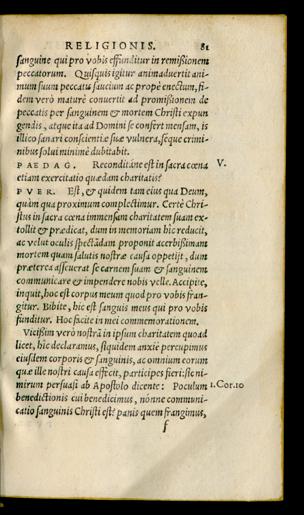 RELIGIONIS. 81
sanguine qui pro vobis effunditur in remißionem
peccatorum. Quisquis igitur animadvertit ani-
mum suum peccatu saucium ac propè enectum, fi-
dem verò maturè convertit ad promißionem de
peccatis per sanguinem & mortem Christi expun
gendis, atque ita ad Domini se confert mensam, is
illico sanari conscientiæ suæ vulnera, séque crimi-
nibus solui minimè dubitabit.
PAEDAG. Reconditáne est in sacra cœna V.
etiam exercitatio quædam charitatis?
PVER. Est, & quidem tam eius qua Deum,
quàm qua proximum complectimur. Certè Chri-
stus in sacra cœna immensam charitatem suam ex-
tollit & prædicat, dum in memoriam hîc reducit,
ac velut oculis spectãdam proponit acerbißimam
mortem quam salutis nostræ causa oppetijt, dum
præterea asseuerat se carnem suam & sanguinem
communicare & impendere nobis velle. Accipite,
inquit, hoc est corpus meum quod pro vobis fran-
gitur. Bibite, hic est sanguis meus qui pro vobis
funditur. Hoc facite in mei commemorationem.
Vicißim verò nostrã in ipsum charitatem quoad
licet, hîc declaramus, siquidem anxiè percupimus
eiusdem corporis & sanguinis, ac omnium eorum
quæ ille nostri causa effecit, participes fieri: sic ni-
mirum persuasi ab Apostolo dicente: Poculum 1.Cor.10
benedictionis cui benedicimus, nónne communi-
catio sanguinis Christi est? panis quem frangimus,
f